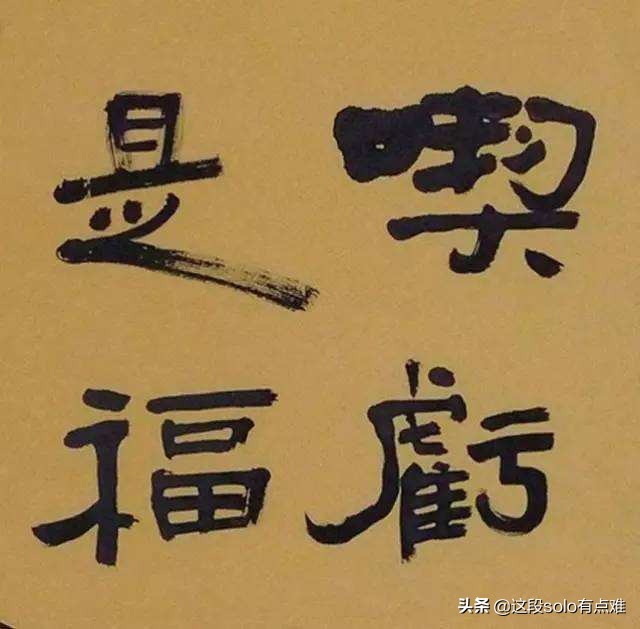 喫虧
是福
头条 @这段solo有点难